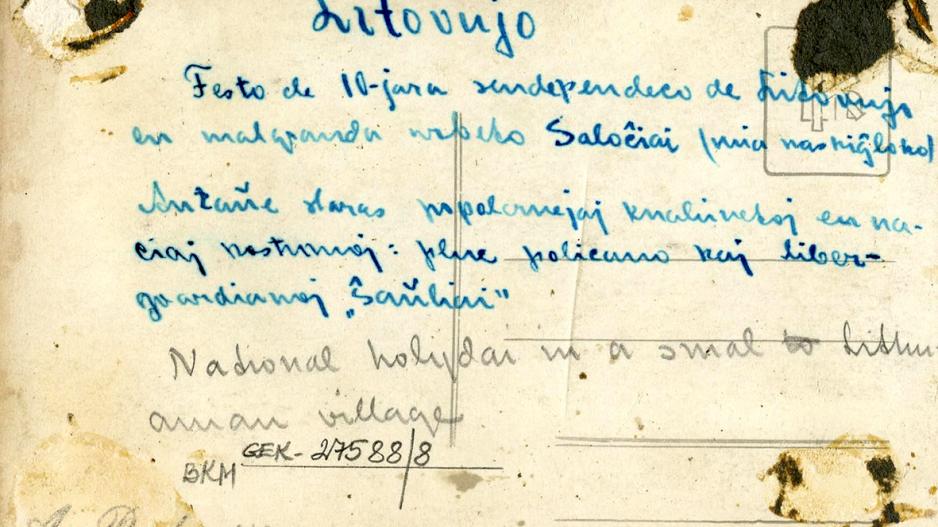 Litovujo
Festo de 10-jara sendependeco de Litovujo
en malgranda urbeto Saločiai (mia naskiĝloko)
Antaŭe staras popolernejaj knabinetoj en na-
ciaj kostumoj: plue policano kaj liber-
gvardianoj „Šauliai"
National holydai in a smal to Lithu-
anian village
GEK-27588/8
BKM